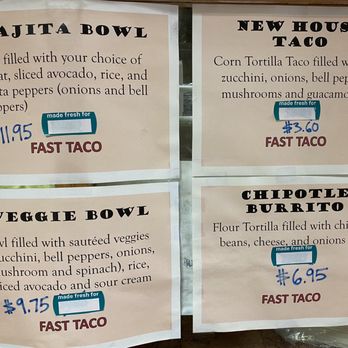 AJITA BOWL
filled with your choice of
at, sliced avocado, rice, and
ta peppers (onions and bell
ppers)
made fresh for
11.95
FAST TACO
NEW HOUS
TACO
Corn Tortilla Taco filled w
zucchini, onions, bell pep
mushrooms and guacamo
made fresh for
$3.60
FAST TACO
VEGGIE BOWL
wl filled with sautéed veggies
ucchini, bell peppers, onions,
ushroom and spinach), rice,
iced avocado and sour cream
made fresh for
$9.75
FAST TACO
CHIPOTLE
BURRITO
Flour Tortilla filled with chi
beans, cheese, and onions
made fresh for
$6.95
FAST TACO